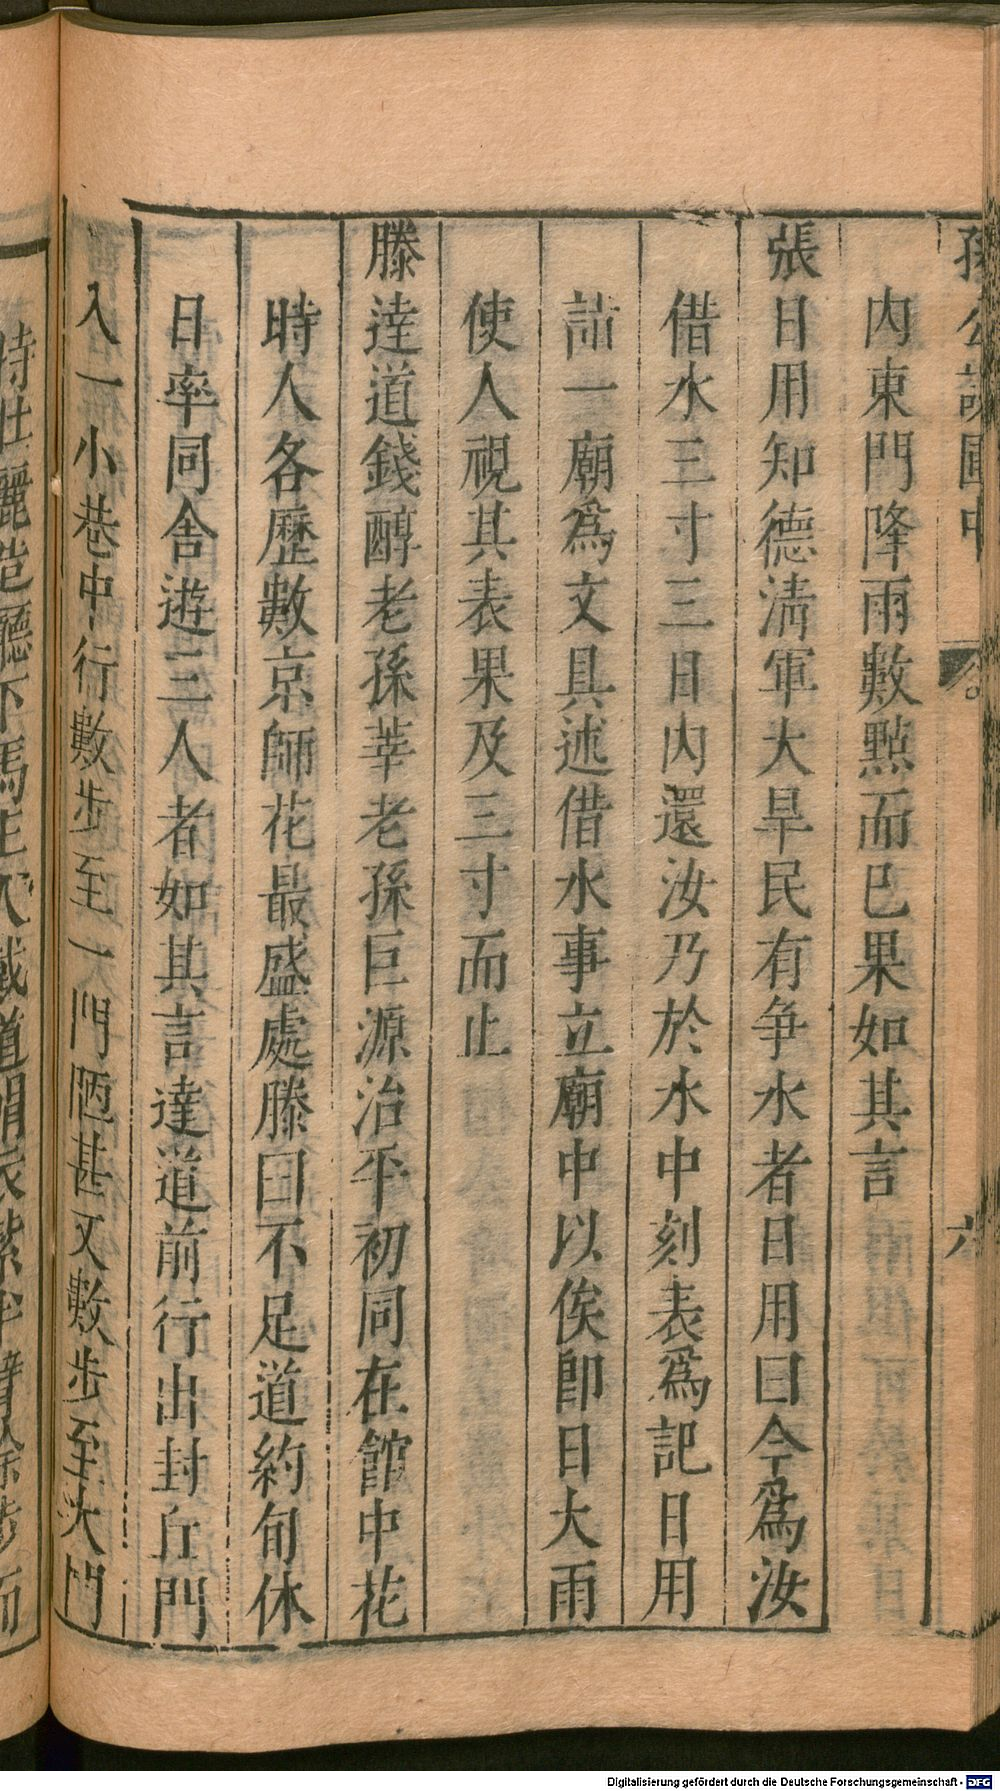 孫公談圃中
六
内東門降雨數㸃而已果如其言
張日用知德淸軍大旱民有争水者日用曰今爲汝
借水三寸三日内還汝乃於水中刻表爲記日用
詣一廟爲文具述借水事立廟中以俟即日大雨
使人視其表果及三寸而止
滕達道錢醇老孫莘老孫巨源治平初同在館中花
時人各歷數京師花最盛處滕曰不足道約旬休
日率同舍遊三人者如其言達道前行出封丘門
入一小巷中行數步至一門陋甚又數步至大門
特壯麗造廳下馬主人戴道帽衣紫半臂徐步而
Digitalisierung gefördert durch die Deutsche Forschungsgemeinschaft - DFG